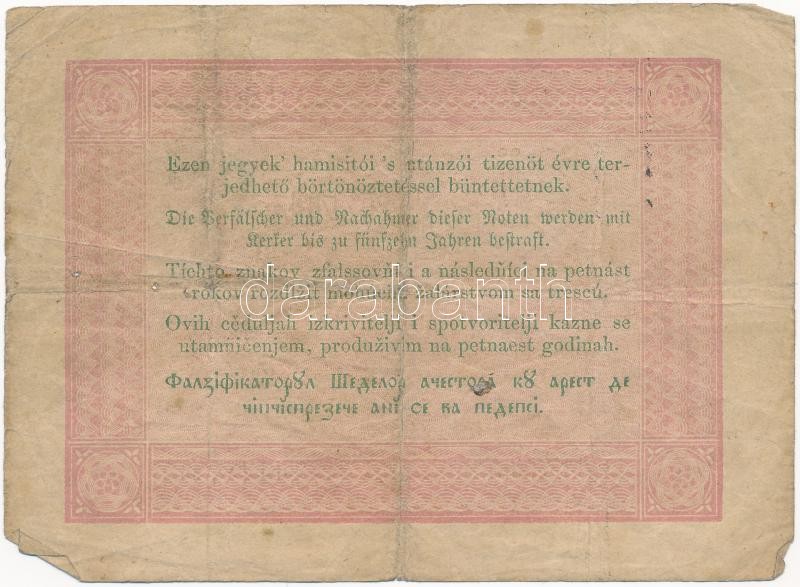 Ezen jegyek' hamisitói 's utánzói tizenöt évre ter-
jedhető börtönöztetéssel büntettetnek.
Die Verfälscher und Nachahmer dieser Noten werden mit
Kerker bis zu fünfzehn Jahren bestraft.
Tíchto znakov zfalssovňíci a následňíci na petnást
rokov žalárstvom sa trescú.
darabanth
Ovih cěduljah izkrivitelji i spotvoritelji kazne se
utamničenjem, produživim na petnaest godinah.
Фалꙁіфікаторꙋл Шеделор ачестора кꙋ арест де
чінчіспреꙁече ані се ва педепсі.